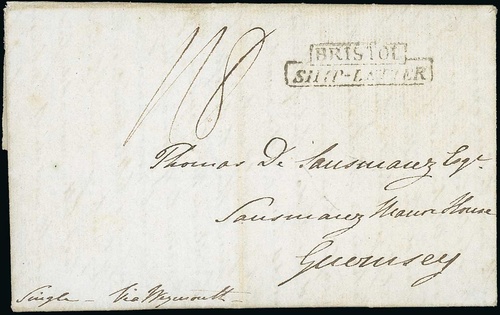 BRISTOL
SHIP-LETTER
1/8
Thomas De Sausmarez Esqr.
Sausmarez Manor House
Guernsey
Single - Via Weymouth -